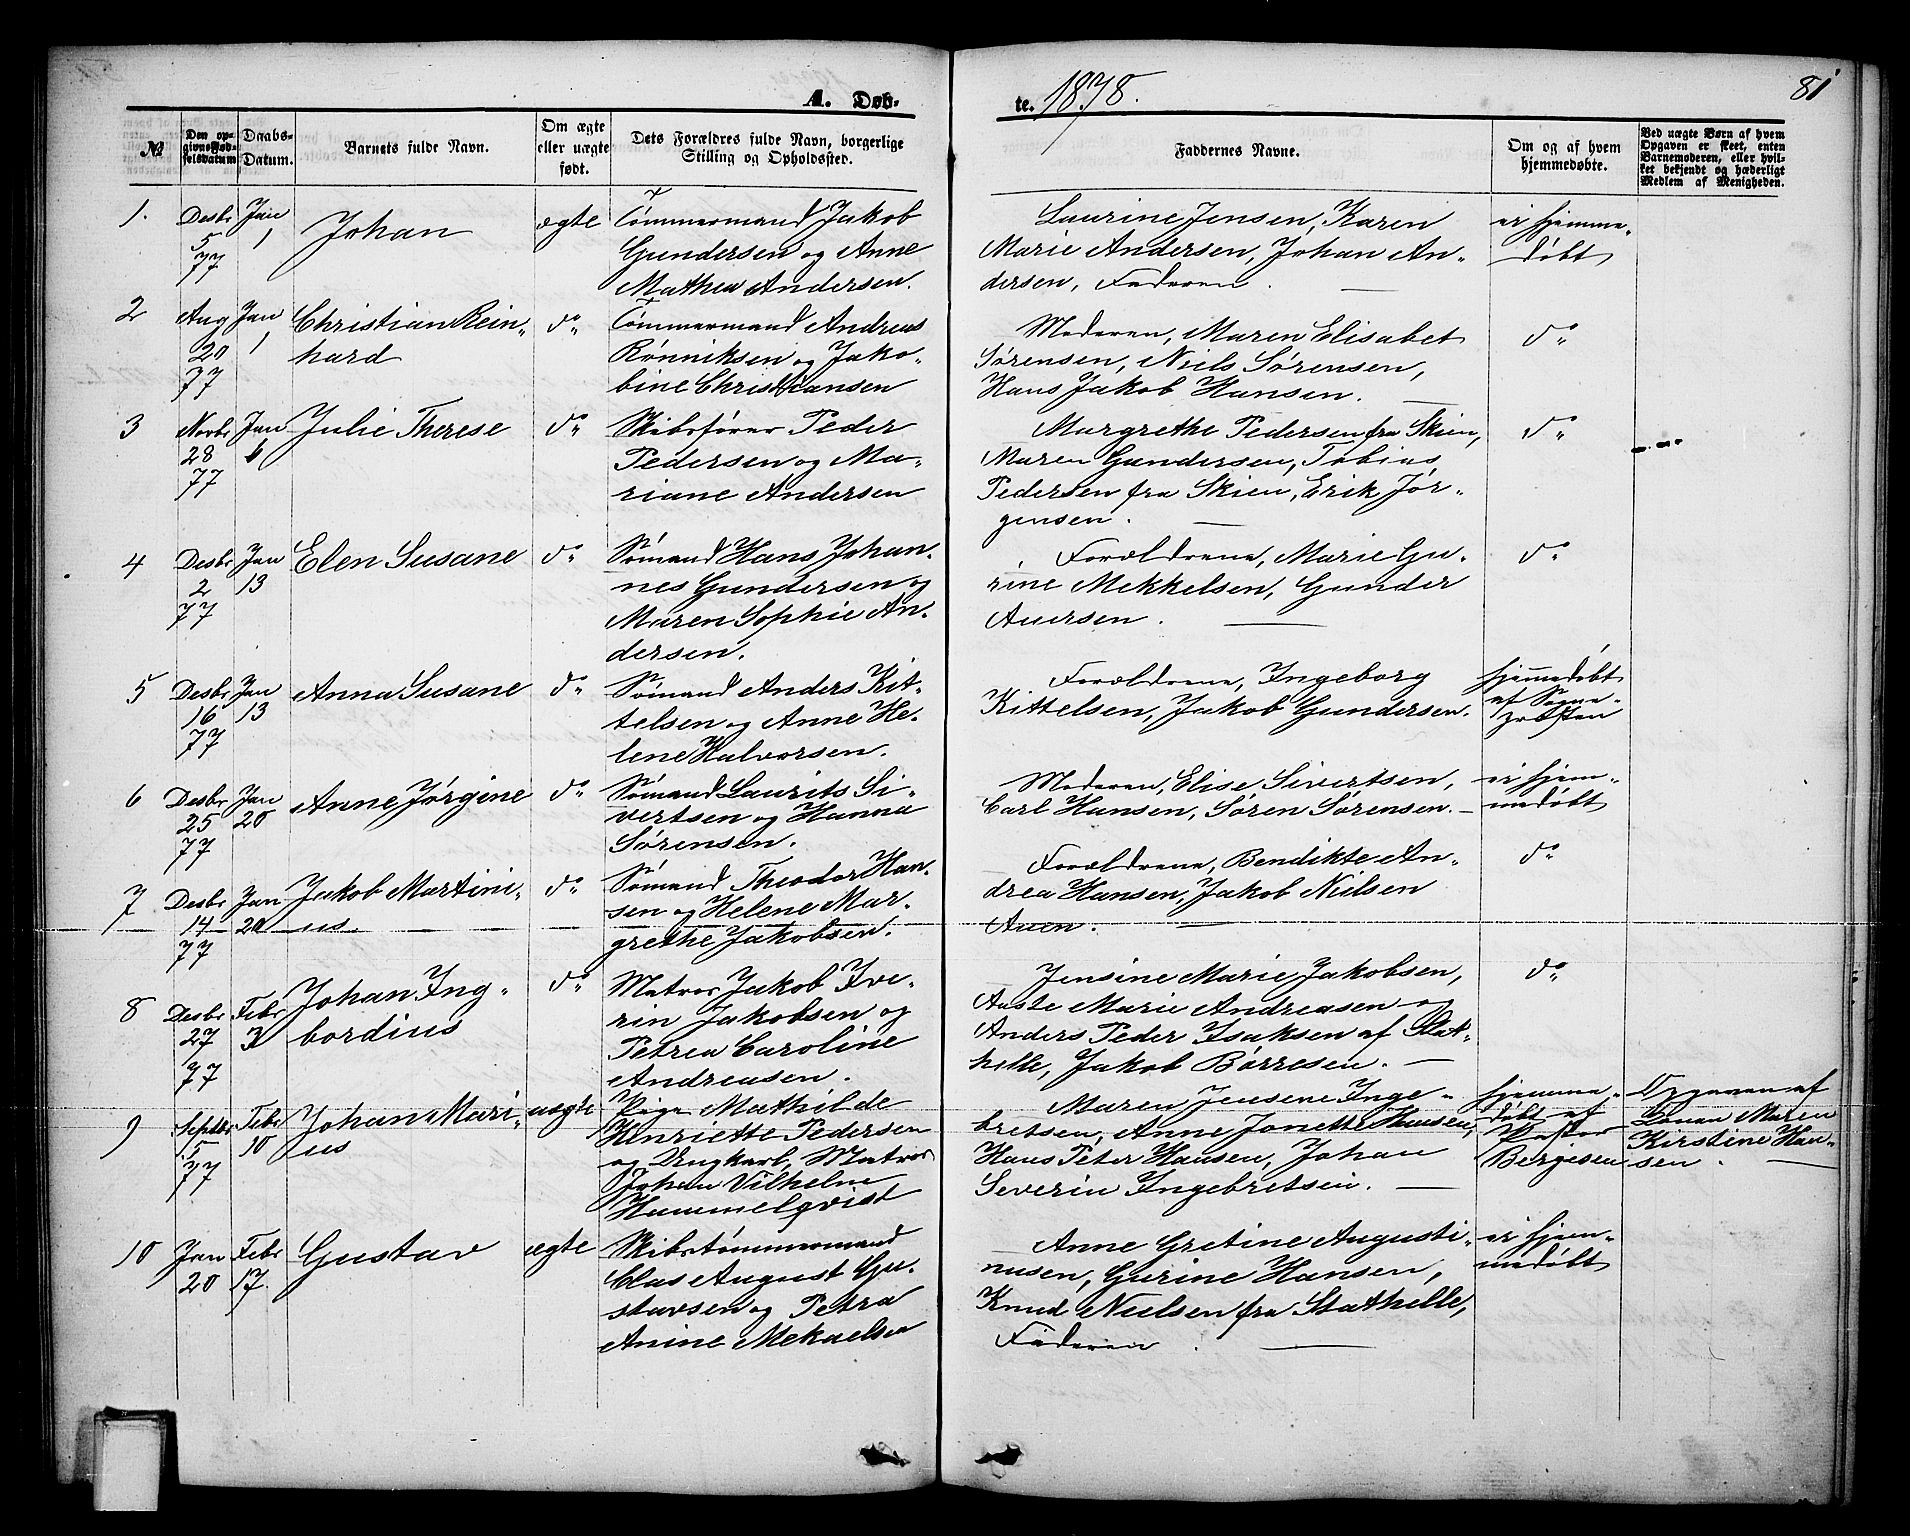 A. Døb-
te. 1878.
81
№
Den op-
givne Fød-
selsdatum
Daabs-
Datum.
Barnets fulde Navn.
Om ægte
eller uægte
født.
Dets Forældres fulde Navn, borgerlige
Stilling og Opholdssted.
Faddernes Navne.
Om og af hvem
hjemmedøbte.
Ved uægte Børn af hvem
Opgaven er skeet, enten
Barnemoderen, eller hvil-
ket bekjendt og hæderligt
Medlem af Menigheden.
1.
Desbr
5
77
Jan
1
Johan
ægte
Tømmermand Jakob
Gundersen og Anne
Mathea Andersen.
Laurine Jensen, Karen
Marie Andersen, Johan An-
dersen, Faderen.
ei hjemme-
døbt
2
Aug
20
77
Jan
1
Christian Rein-
hard
do
Tømmermand Andreas
Rønniksen og Jako-
bine Christiansen
Moderen, Maren Elisabet
Sørensen, Niels Sørensen,
Hans Jakob Hansen.
do
3
Novbr
28
77
Jan
6
Julie Therese
do
Skibsfører Peder
Pedersen og Ma-
riane Andersen
Margrethe Pedersen fra Skien,
Maren Gundersen, Tobias
Pedersen fra Skien, Erik Jør-
gensen.
do
4
Desbr
2
77
Jan
13
Elen Susane
do
Sømand Hans Johan-
nes Gundersen og
Maren Sophie An-
dersen.
Forældrene, Marie Gu-
rine Mekkelsen, Gunder
Auersen.
do
5
Desbr
16
77
Jan
13
Anna Susane
do
Sømand Anders Kit-
telsen og Anne He-
lene Halvorsen.
Forældrene, Ingeborg
Kittelsen, Jakob Gundersen.
hjemmedøbt
af Sogne-
præsten
6
Desbr
25
77
Jan
20
Anne Jørgine
do
Sømand Laurits Si-
vertsen og Hanna
Sørensen.
Moderen, Elise Sivertsen,
Carl Hansen, Søren Sørensen.
ei hjem-
medøbt
7
Desbr
14
77
Jan
20
Jakob Martini-
us.
do
Sømand Theodor Han-
sen og Helene Mar-
grethe Jakobsen.
Forældrene, Bendikte An-
drea Hansen, Jakob Nielsen
Auen.
do
8
Desbr
27
77
Febr
3
Johan Ing-
bordius
do
Matros Jakob Ive-
rin Jakobsen og
Petrea Caroline
Andreasen.
Jensine Marie Jakobsen,
Aaste Marie Andreasen og
Anders Peder Isaksen af Stat-
helle, Jakob Børresen.
do
9
Septbr
5
77
Febr
10
Johan Mari-
us
uægte
Pige Mathilde
Henriette Pedersen
og Ungkarl, Matros
Johan Vilhelm
Hammelqvist
Maren Jensene Inge-
bretsen, Anne Jonette Hansen,
Hans Peter Hansen, Johan
Severin Ingebretsen.
hjemme-
døbt af
Pastor
Bergesen
Opgaven af
Konen Maren
Kirstine Han-
sen.
10
Jan
20
Febr
17.
Gustav
ægte
Skibstømmermand
Clas August Gu-
stavsen og Petra
Anine Mekaelsen
Anne Gretine Augusti-
nusen, Gurine Hansen,
Knud Nielsen fra Stathelle,
Faderen.
ei hjem-
medøbt